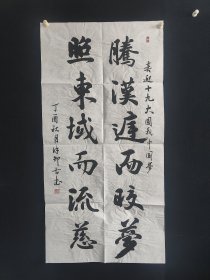 喜迎十九大圓我中國夢
騰漢庭而皎夢
照東域而流慈
丁酉秋月